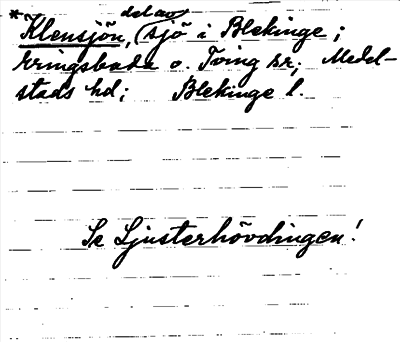 *Klensjön, (del av sjö i Blekinge;
Eringsboda o. Tving sr; Medel-
stads hd; Blekinge l.
Se Ljusterhövdingen!